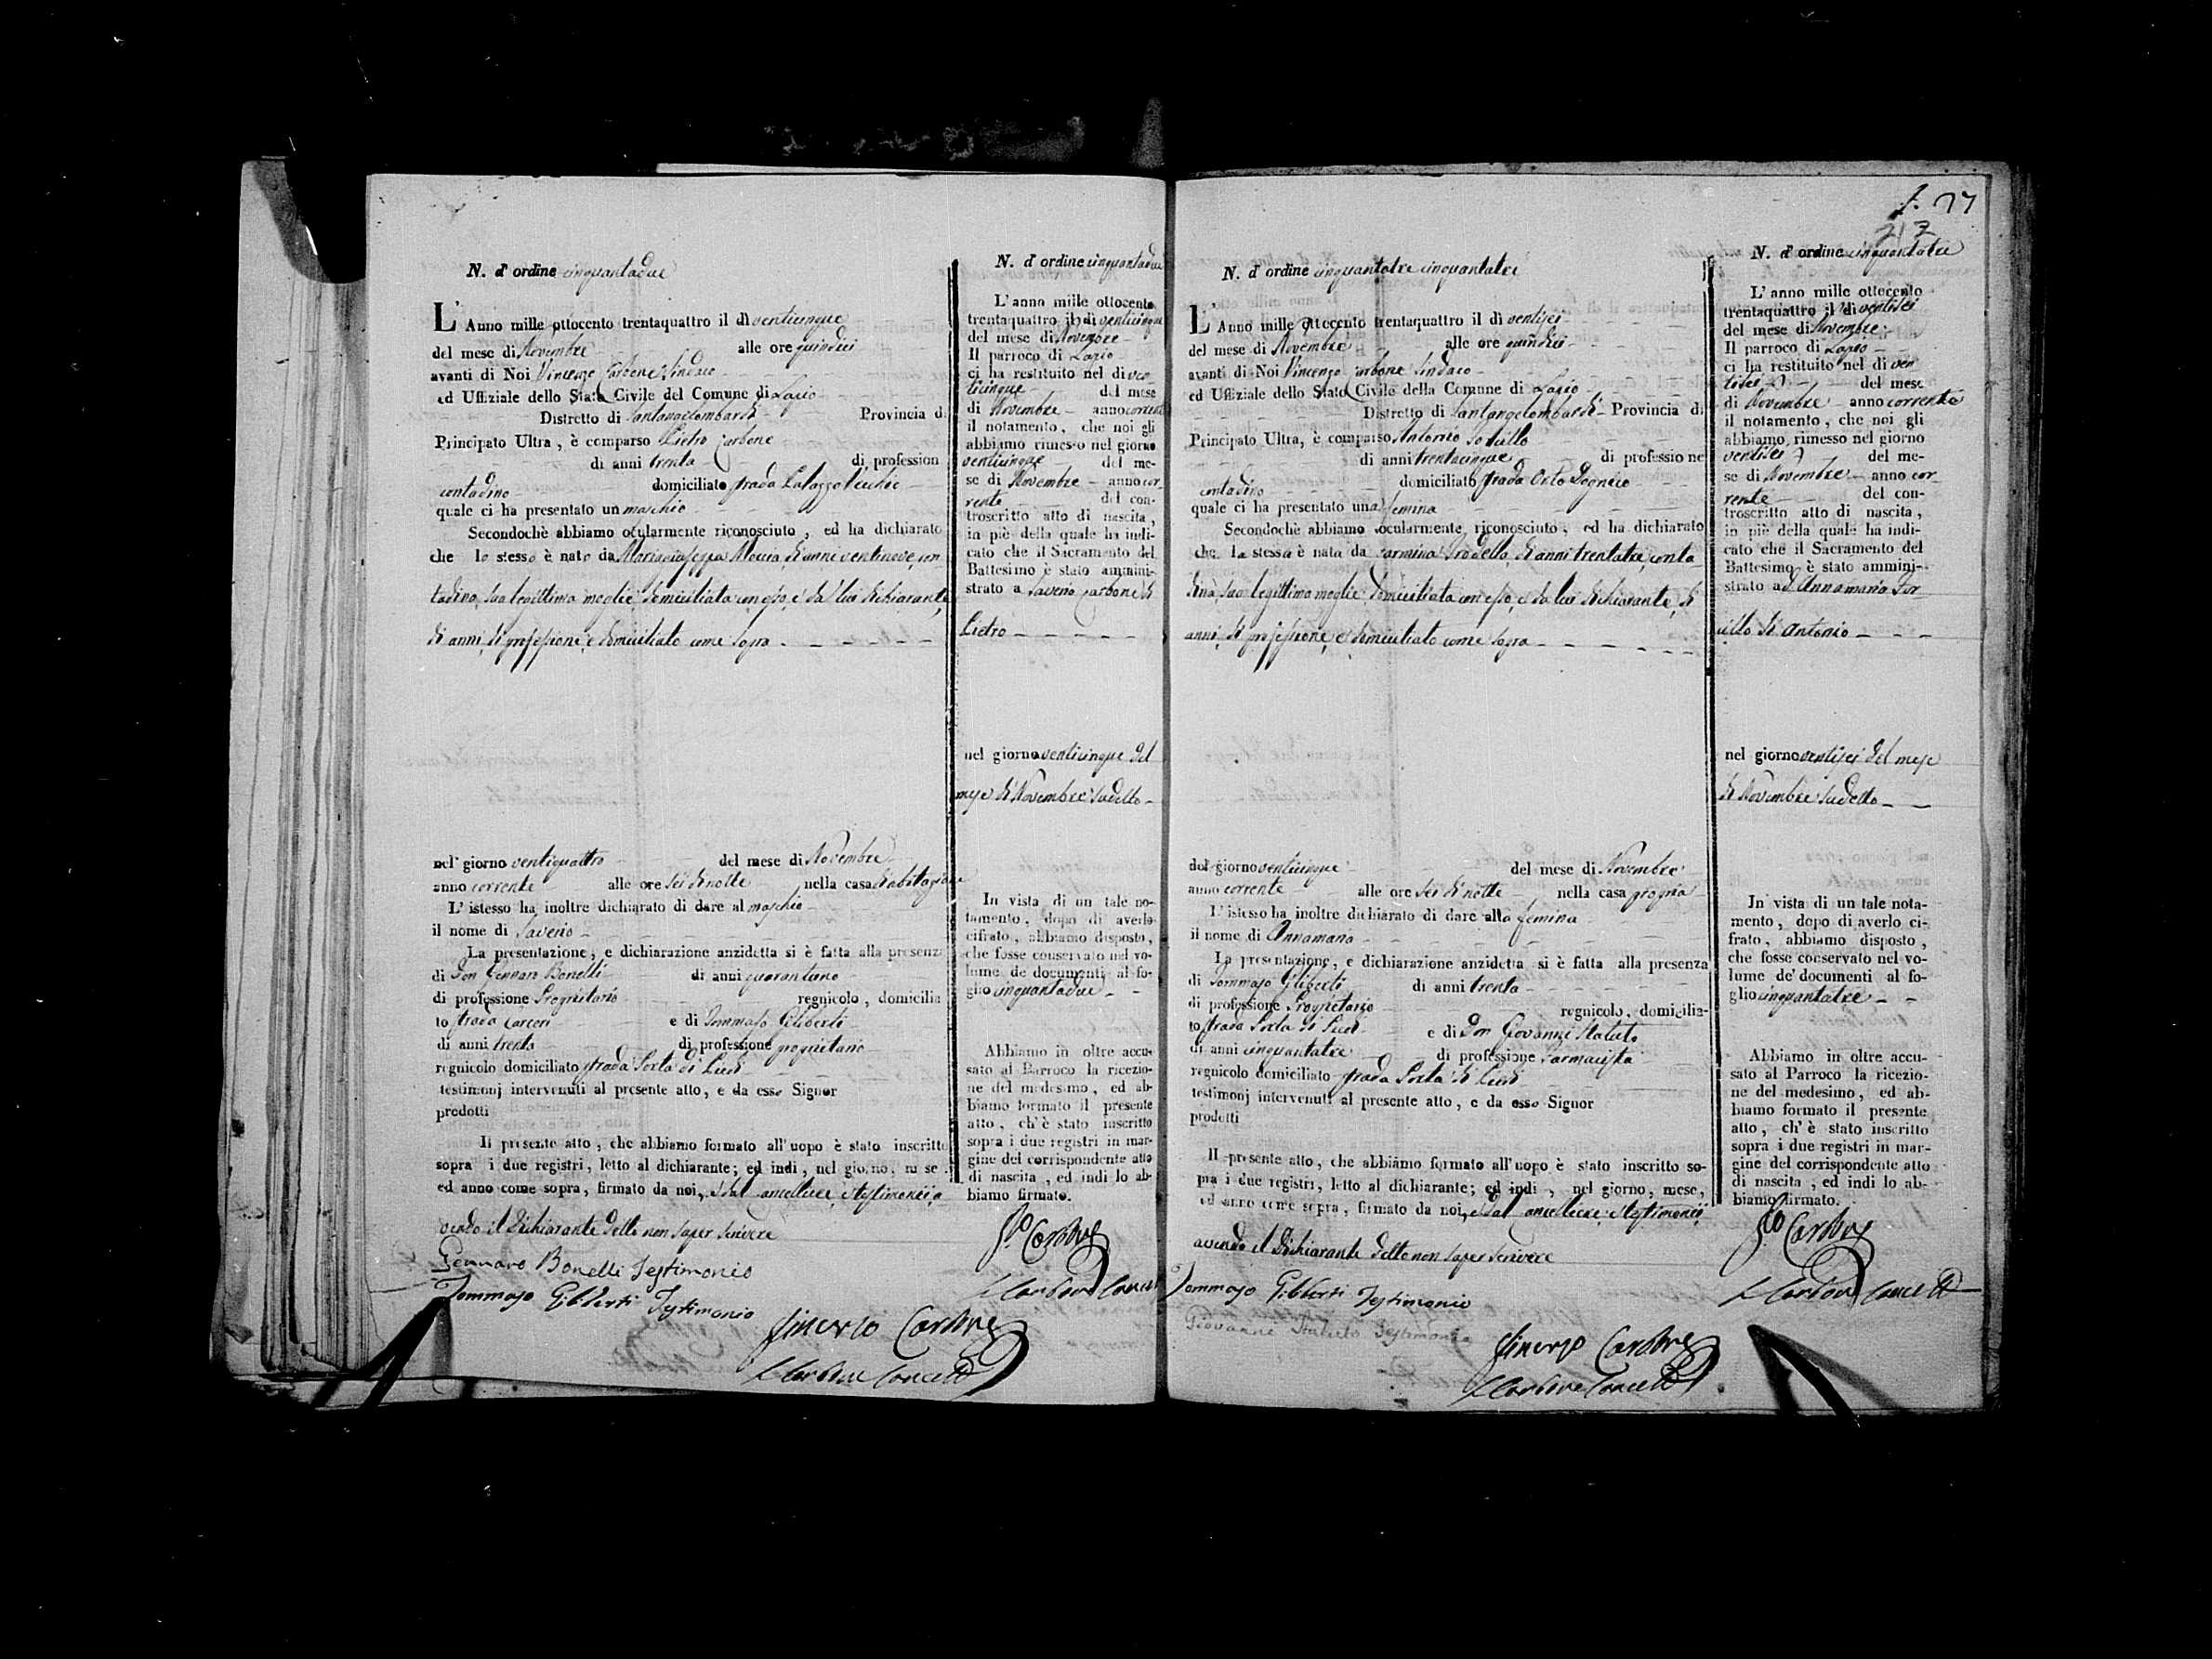 N. d'ordine cinquantadue
L'Anno mille ottocento trentaquattro il dì venticinque
del mese di Novembre alle ore quindici
avanti di Noi Vincenzo Carbone Sindaco
ed Uffiziale dello Stato Civile del Comune di Lapio
Distretto di Santangelombardi Provincia di
Principato Ultra, è comparso Pietro Carbone
di anni trenta di profession
contadino domiciliato strada Palazzo Vecchio
quale ci ha presentato un maschio
Secondochè abbiamo ocularmente riconosciuto, ed ha dichiarato
che lo stesso è nato da Mariagiuseppa di anni ventinove, con
tadina, sua legittima moglie domiciliata con esso, e da lui dichiarante,
di anni, di professione, e domiciliato come sopra
nel giorno ventiquattro del mese di Novembre
anno corrente alle ore sei di notte nella casa di abitazione
L'istesso ha inoltre dichiarato di dare al maschio
il nome di Saverio
La presentazione, e dichiarazione anzidetta si è fatta alla presenza
di Don Gennaro Bonelli di anni quarantuno
di professione Proprietario regnicolo, domicilia
to strada Carceri e di Tommaso Giliberti
di anni trenta di professione proprietario
regnicolo domiciliato strada Porta di Piedi
testimonj intervenuti al presente atto, e da esso Signor
prodotti
Il presente atto, che abbiamo formato all'uopo è stato inscritto
sopra i due registri, letto al dichiarante; ed indi, nel giorno, mese
ed anno come sopra, firmato da noi, e dal cancelliere, e testimonii, a
vendo il dichiarante detto non saper scrivere
Gennaro Bonelli Testimonio
Tommaso Giliberti Testimonio
Vincenzo Carbone
Carbone Cancell
N. d'ordine cinquantadue
L'anno mille ottocento
trentaquattro il dì venticinque
del mese di Novembre
Il parroco di Lapio
ci ha restituito nel dì ven
ticinque del mese
di Novembre anno corrente
il notamento, che noi gli
abbiamo rimesso nel giorno
venticinque del me-
se di Novembre anno cor-
rente del con-
troscritto atto di nascita,
in piè della quale ha indi-
cato che il Sacramento del
Battesimo è stato ammini-
strato a Saverio Carbone di
Pietro
nel giorno venticinque del
mese di Novembre sudetto
In vista di un tale no-
tamento, dopo di averlo
cifrato, abbiamo disposto,
che fosse conservato nel vo-
lume de' documenti al fo-
glio cinquantadue
Abbiamo in oltre accu-
sato al Parroco la ricezio-
ne del medesimo, ed ab-
biamo formato il presente
atto, ch'è stato inscritto
sopra i due registri in mar-
gine del corrispondente atto
di nascita, ed indi lo ab-
biamo firmato.
Carbone
Carbone Cancell
77
217
N. d'ordine cinquantatre cinquantatre
L'Anno mille ottocento trentaquattro il dì ventisei
del mese di Novembre alle ore quindici
avanti di Noi Vincenzo Carbone Sindaco
ed Uffiziale dello Stato Civile della Comune di Lapio
Distretto di Santangelombardi Provincia di
Principato Ultra, è comparso Antonio
di anni trentacinque di professione
contadino domiciliato strada Orto
quale ci ha presentato una femina
Secondochè abbiamo ocularmente riconosciuto, ed ha dichiarato
che la stessa è nata da Carmina di anni trentatre, conta
dina, sua legittima moglie domiciliata con esso, e da lui dichiarante, di
anni, di professione, e domiciliato come sopra
del giorno venticinque del mese di Novembre
anno corrente alle ore sei di notte nella casa propria
L'istesso ha inoltre dichiarato di dare alla femina
il nome di Annamaria
La presentazione, e dichiarazione anzidetta si è fatta alla presenza
di Tommaso Giliberti di anni trenta
di professione Proprietario regnicolo, domicilia-
to strada Porta di Piedi e di Don Giovanni Statuto
di anni cinquantatre di professione Farmacista
regnicolo domiciliato strada Porta di Piedi
testimonj intervenuti al presente atto, e da esso Signor
prodotti
Il presente atto, che abbiamo formato all'uopo è stato inscritto so-
pra i due registri, letto al dichiarante; ed indi, nel giorno, mese,
ed anno come sopra, firmato da noi, e dal cancelliere, e testimonii,
avendo il dichiarante detto non saper scrivere
Tommaso Giliberti Testimonio
Giovanni Statuto Testimonio
Vincenzo Carbone
Carbone Cancell
N. d'ordine cinquantatre
L'anno mille ottocento
trentaquattro il dì ventisei
del mese di Novembre
Il parroco di Lapio
ci ha restituito nel dì ven
tisei del mese
di Novembre anno corrente
il notamento, che noi gli
abbiamo rimesso nel giorno
ventisei del me-
se di Novembre anno cor-
rente del con-
troscritto atto di nascita,
in piè della quale ha indi-
cato che il Sacramento del
Battesimo è stato ammini-
strato ad Annamaria
di Antonio
nel giorno ventisei del mese
di Novembre sudetto
In vista di un tale nota-
mento, dopo di averlo ci-
frato, abbiamo disposto,
che fosse conservato nel vo-
lume de' documenti al fo-
glio cinquantatre
Abbiamo in oltre accu-
sato al Parroco la ricezio-
ne del medesimo, ed ab-
biamo formato il presente
atto, ch'è stato inscritto
sopra i due registri in mar-
gine del corrispondente atto
di nascita, ed indi lo ab-
biamo firmato.
Carbone
Carbone Cancell